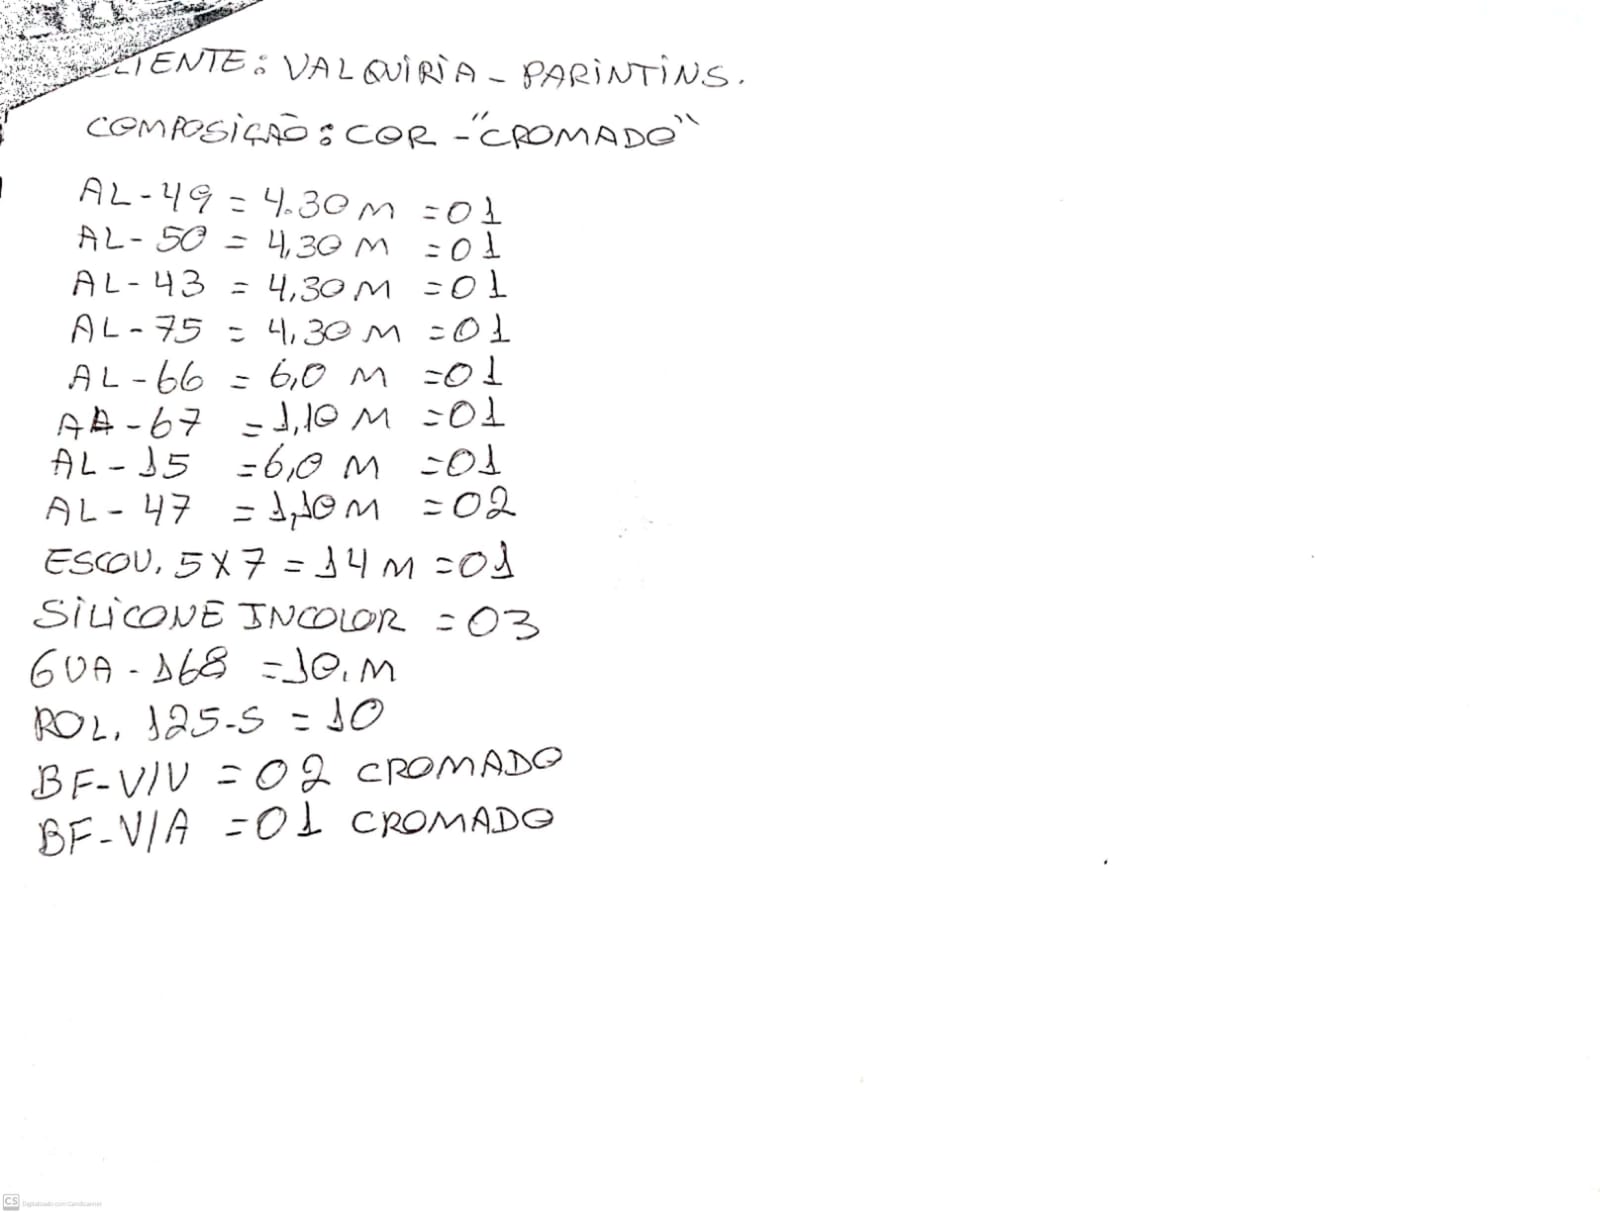 CLIENTE: VALQUIRIA - PARINTINS.
COMPOSIÇÃO: COR - "CROMADO"
AL-49 = 4.30 M = 01
AL-50 = 4,30 M = 01
AL-43 = 4,30 M = 01
AL-75 = 4,30 M = 01
AL-66 = 6,0 M = 01
AL-67 = 1,10 M = 01
AL-15 = 6,0 M = 01
AL-47 = 1,10 M = 02
ESCOV. 5X7 = 14 M = 01
SILICONE INCOLOR = 03
GUA-168 = 10.M
ROL. 125-S = 10
BF-V/V = 02 CROMADO
BF-V/A = 01 CROMADO
CS Digitalizado com CamScanner